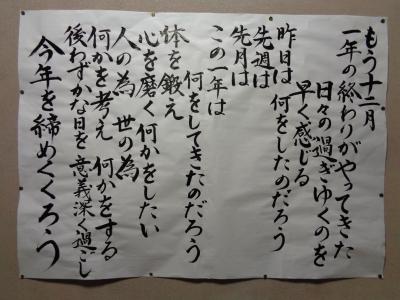 もう十二月
一年の終わりがやってきた
日々の過ぎゆくのを
早く感じる
昨日は
何をしたのだろう
先週は
先月は
この一年は
何をしてきたのだろう
体を鍛え
心を磨く何かをしたい
人の為 世の為
何かを考え 何かをする
後わずかな日を 意義深く過ごし
今年を締めくくろう